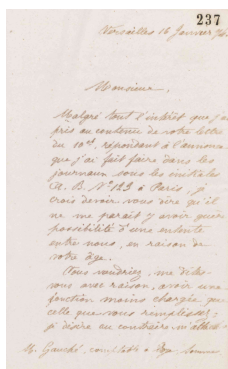 237
Versailles 16 Janvier
Monsieur,
Malgré tout l'intérêt que j'ai
pris au contenu de votre lettre
du 10 ct, répondant à l'annonce
que j'ai fait faire dans les
journaux sous les initiales
A. B. N° 123 à Paris, je
crois devoir vous dire qu'il
ne me paraît y avoir guère
possibilité d'une entente
entre nous, en raison de
votre âge.
Vous voudriez, me dites-
vous avec raison, avoir une
fonction moins chargée que
celle que vous remplissez;
je désire au contraire
M. Gauché, comptable à